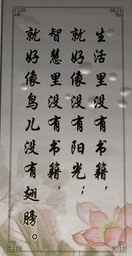 生活里没有书籍，
就好像没有阳光；
智慧里没有书籍，
就好像鸟儿没有翅膀。